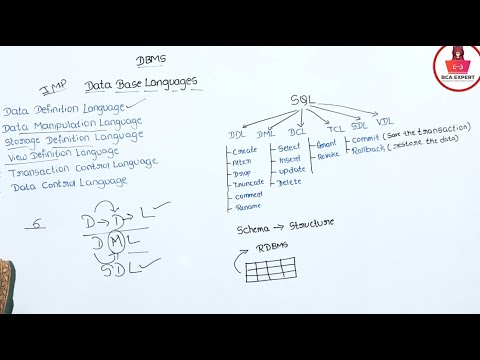 DBMS
IMP
Data Base Languages
Data Definition Language
Data Manipulation Language
Storage Definition Language
View Definition Language
Transaction Control Language
Data Control Language
6
D → D → L
D M L
S D L
SQL
DDL DML DCL TCL SDL VDL
Create
Alter
Drop
Truncate
Comment
Rename
Select
Insert
Update
Delete
Grant
Revoke
Commit (save the transaction)
Rollback (restore the data)
Schema → Structure
RDBMS
BCA EXPERT